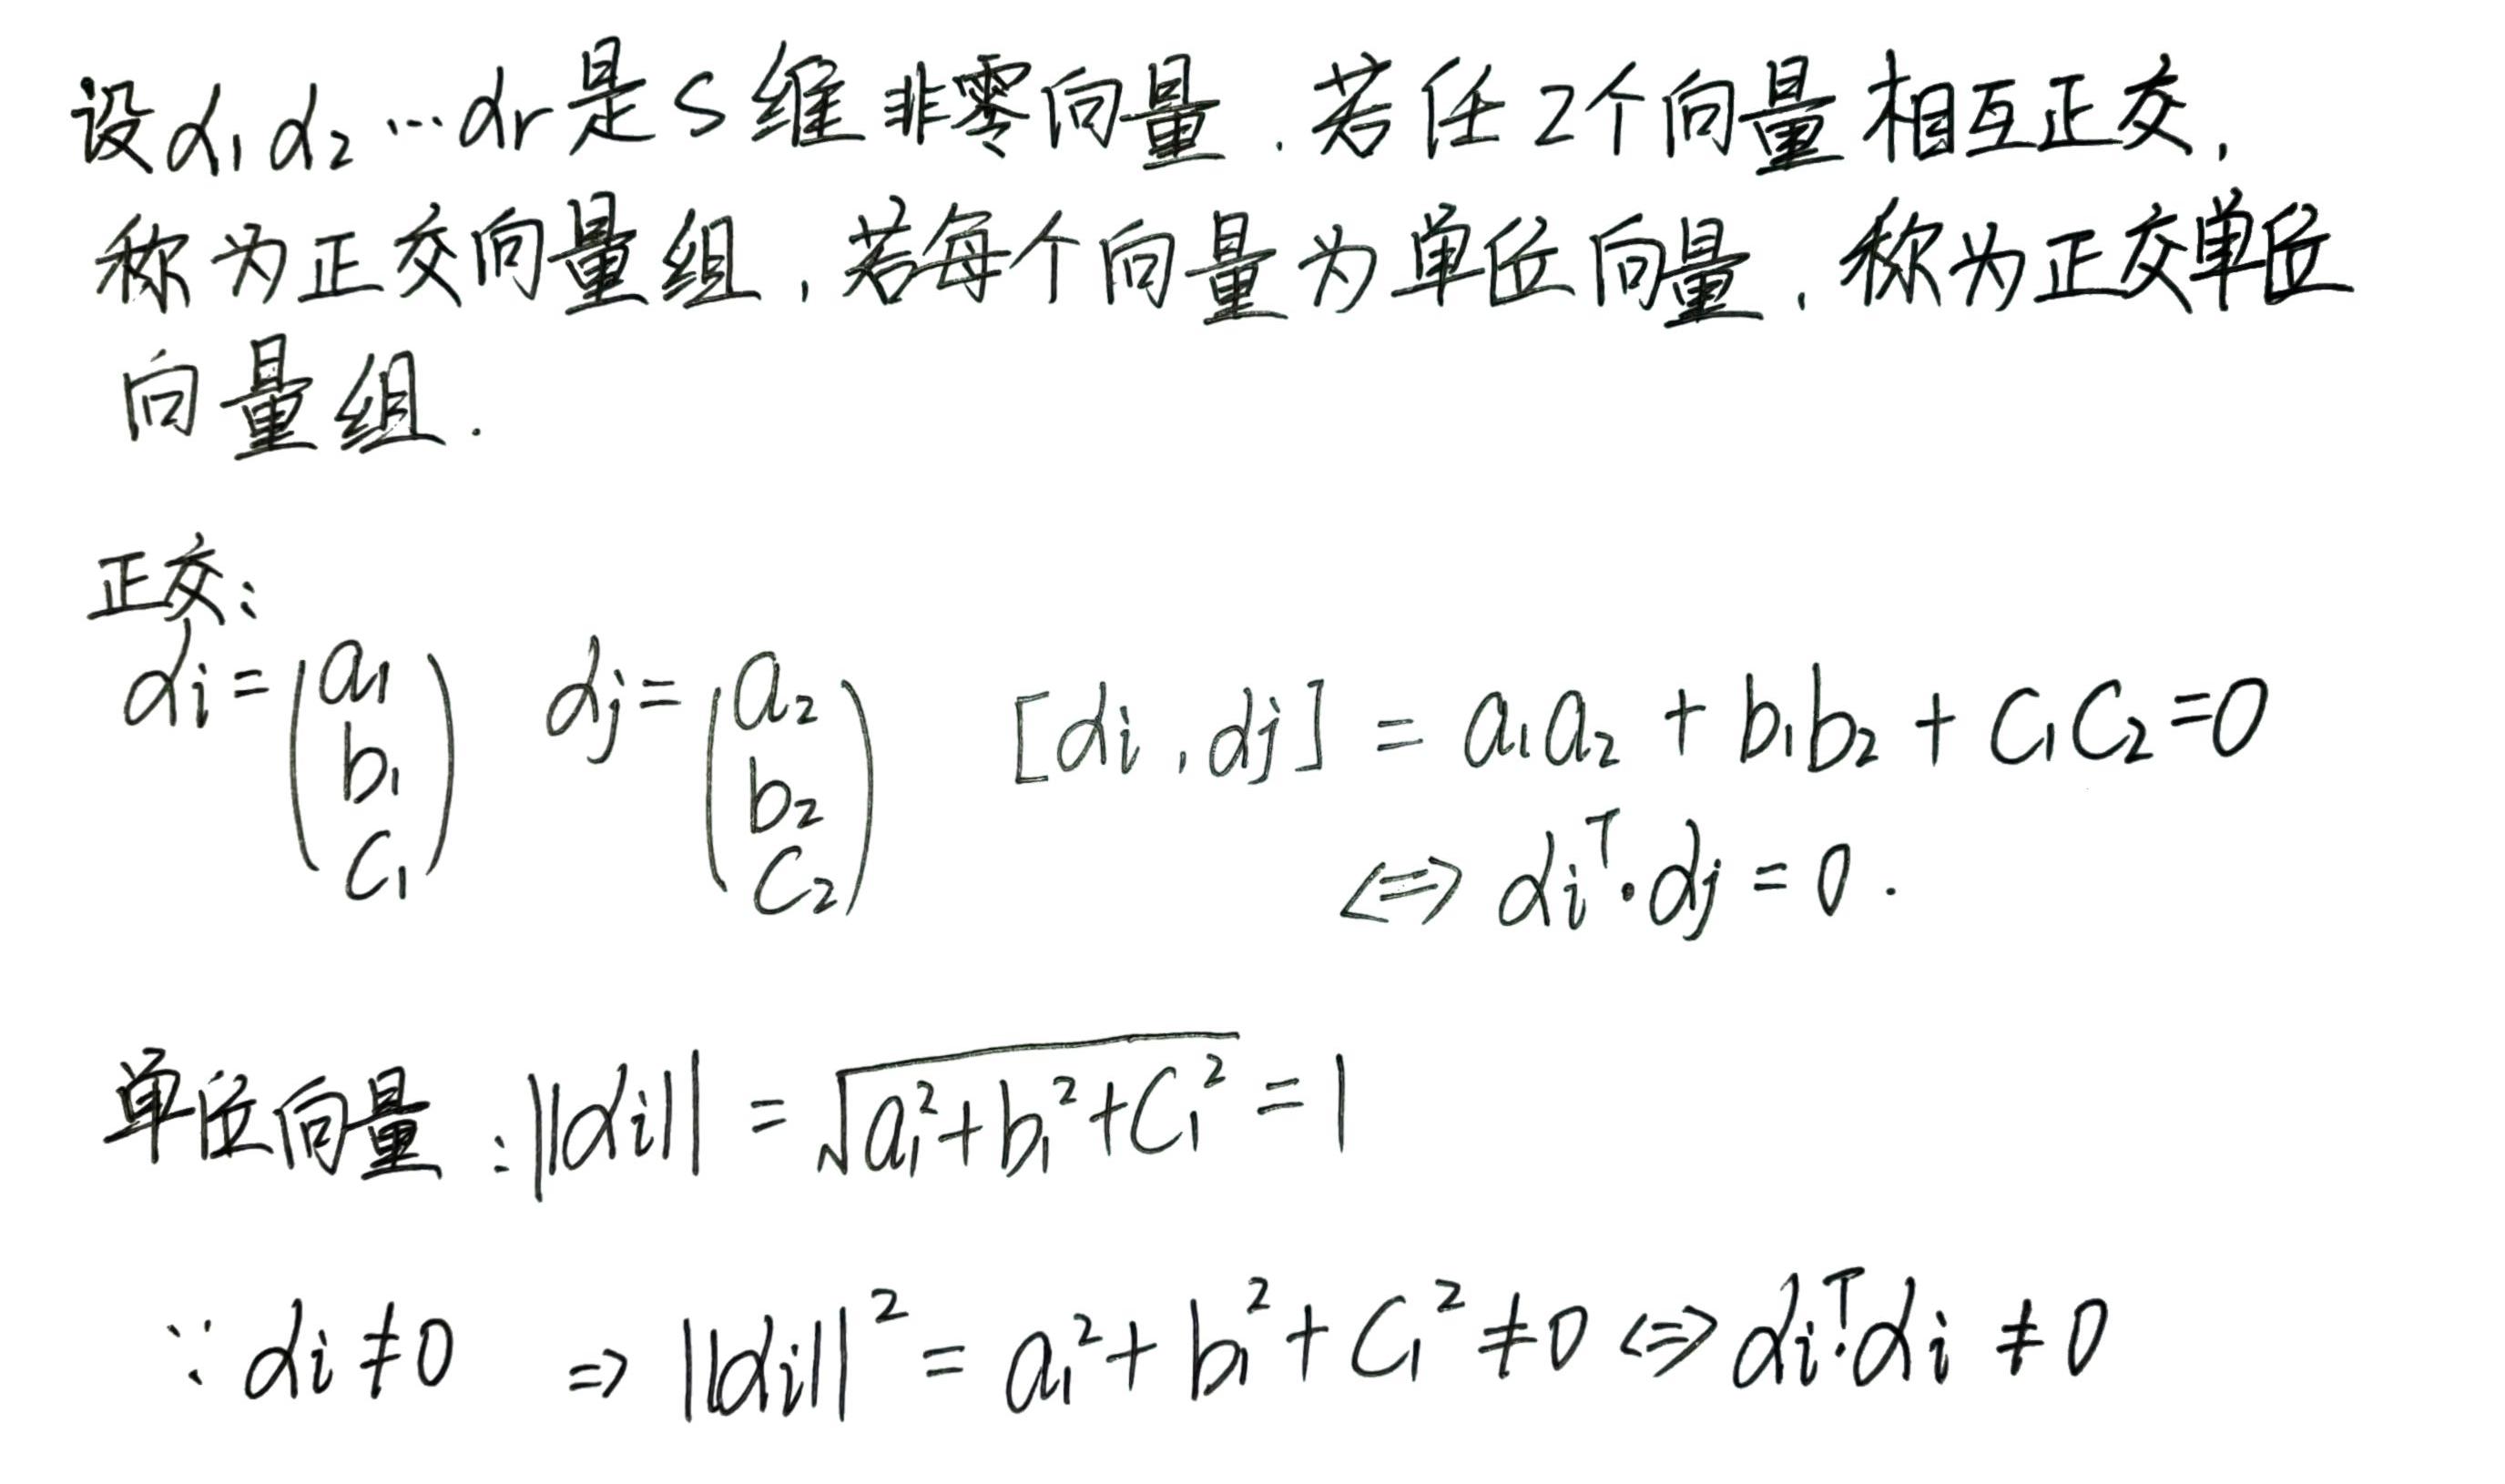 设α₁ α₂ … αr 是 S 维 非零向量. 若任 2个向量 相互正交,
称为正交向量组, 若每个向量为单位向量, 称为正交单位
向量组.
正交:
αi = (a₁ b₁ c₁) αj = (a₂ b₂ c₂) [αi, αj] = a₁a₂ + b₁b₂ + c₁c₂ = 0
<=> αiᵀ·αj = 0.
单位向量: ||αi|| = √(a₁²+b₁²+c₁²) = 1
∵ αi ≠ 0 => ||αi||² = a₁² + b₁² + c₁² ≠ 0 <=> αiᵀ·αi ≠ 0